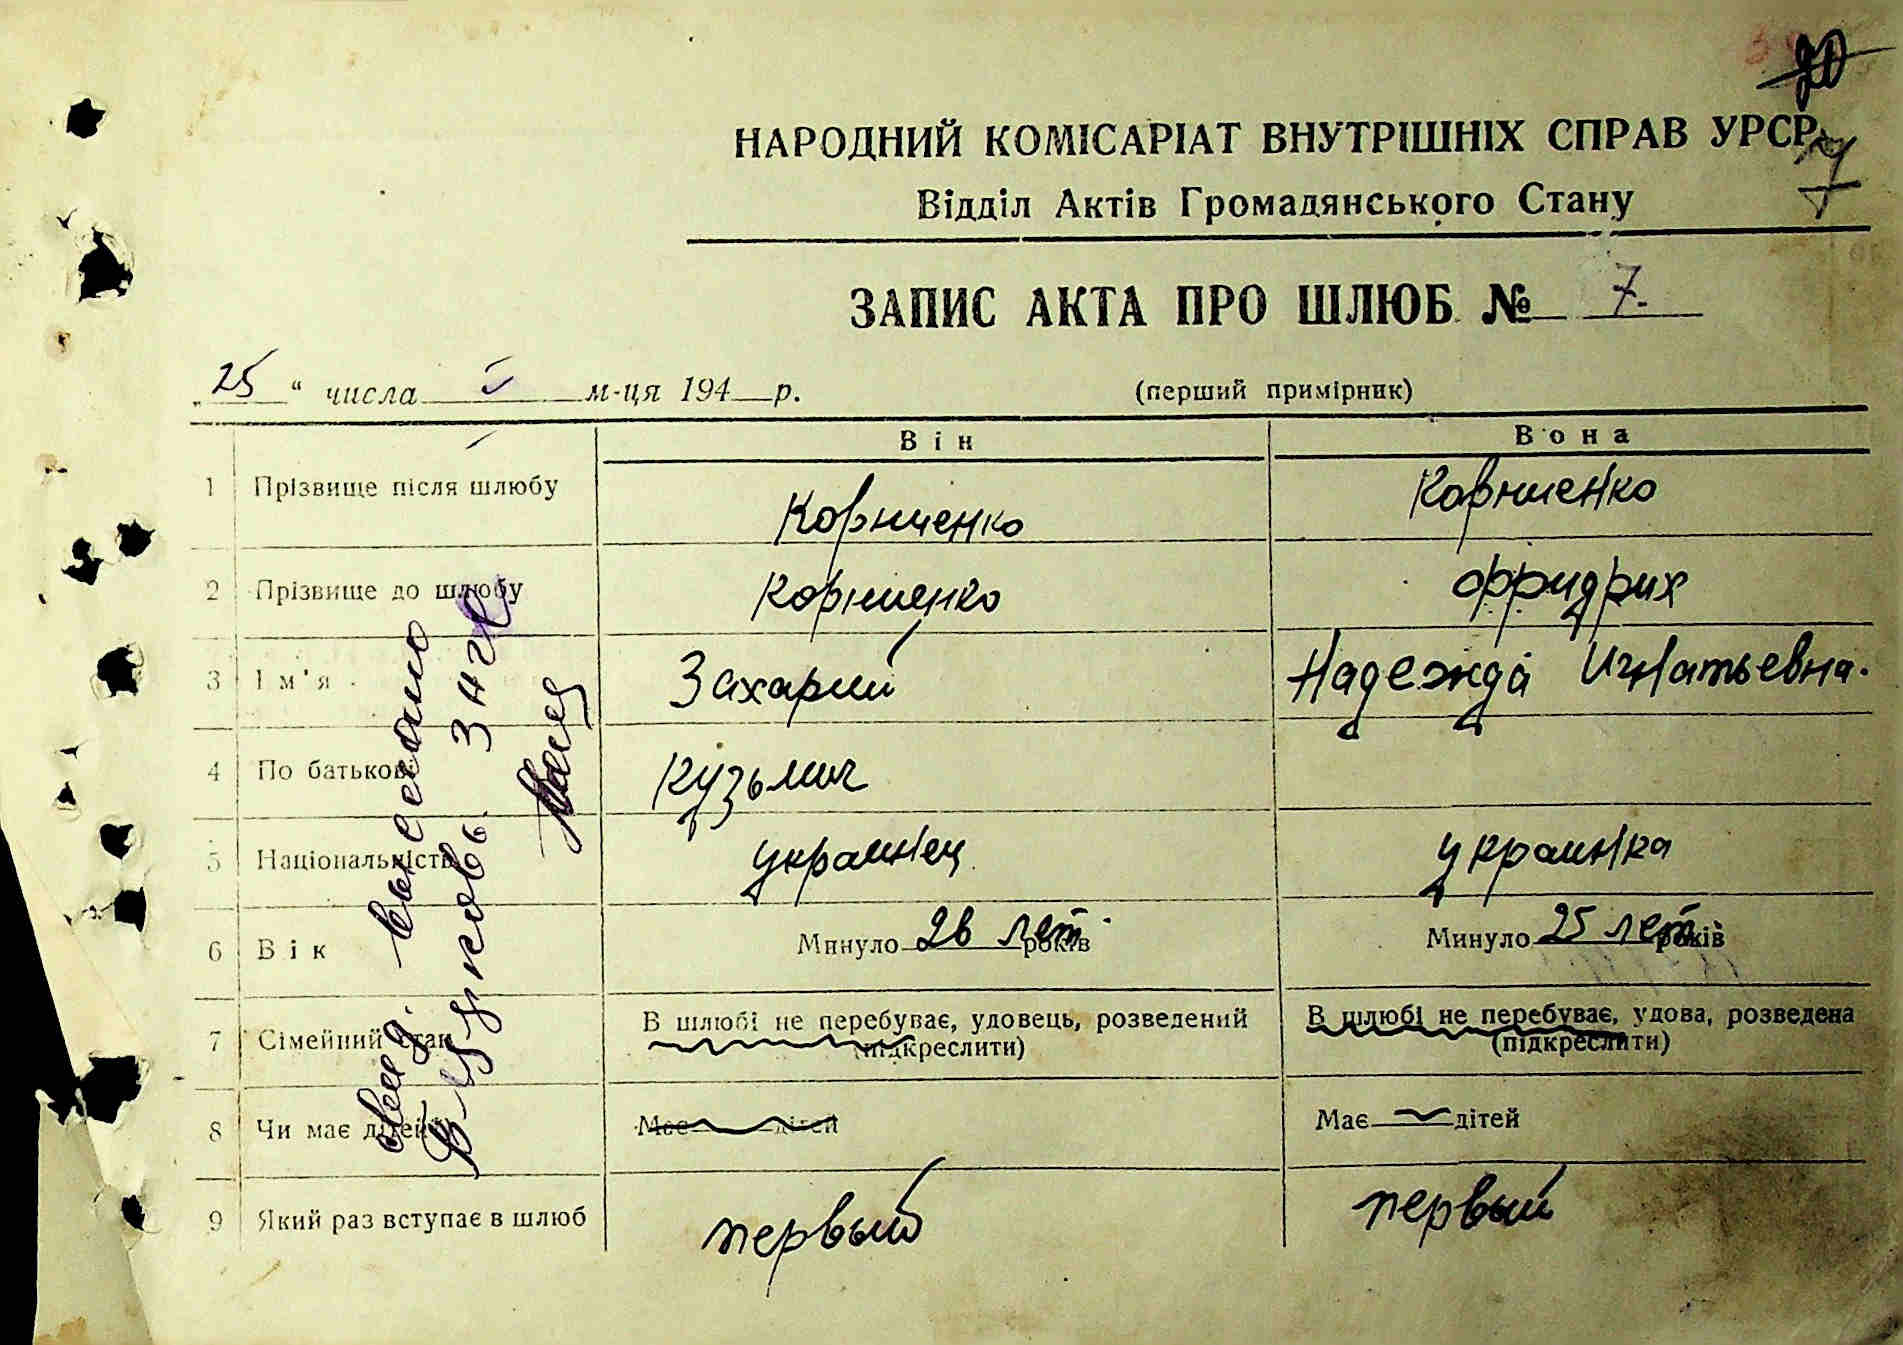 90
НАРОДНИЙ КОМІСАРІАТ ВНУТРІШНІХ СПРАВ УРСР
7
Відділ Актів Громадянського Стану
ЗАПИС АКТА ПРО ШЛЮБ № 7.
„25“ числа V м-ця 194 р. (перший примірник)
Він Вона
1 Прізвище після шлюбу Корниенко Корниенко
2 Прізвище до шлюбу Корниенко Фридрих
3 Ім'я Захарий Надежда Игнатьевна.
4 По батькові Кузьмич
5 Національність украинец украинка
6 Вік Минуло 26 лет років Минуло 25 лет років
7 Сімейний стан В шлюбі не перебуває, удовець, розведений В шлюбі не перебуває, удова, розведена
(підкреслити) (підкреслити)
8 Чи має дітей Має дітей Має дітей
9 Який раз вступає в шлюб первый первый
выслано